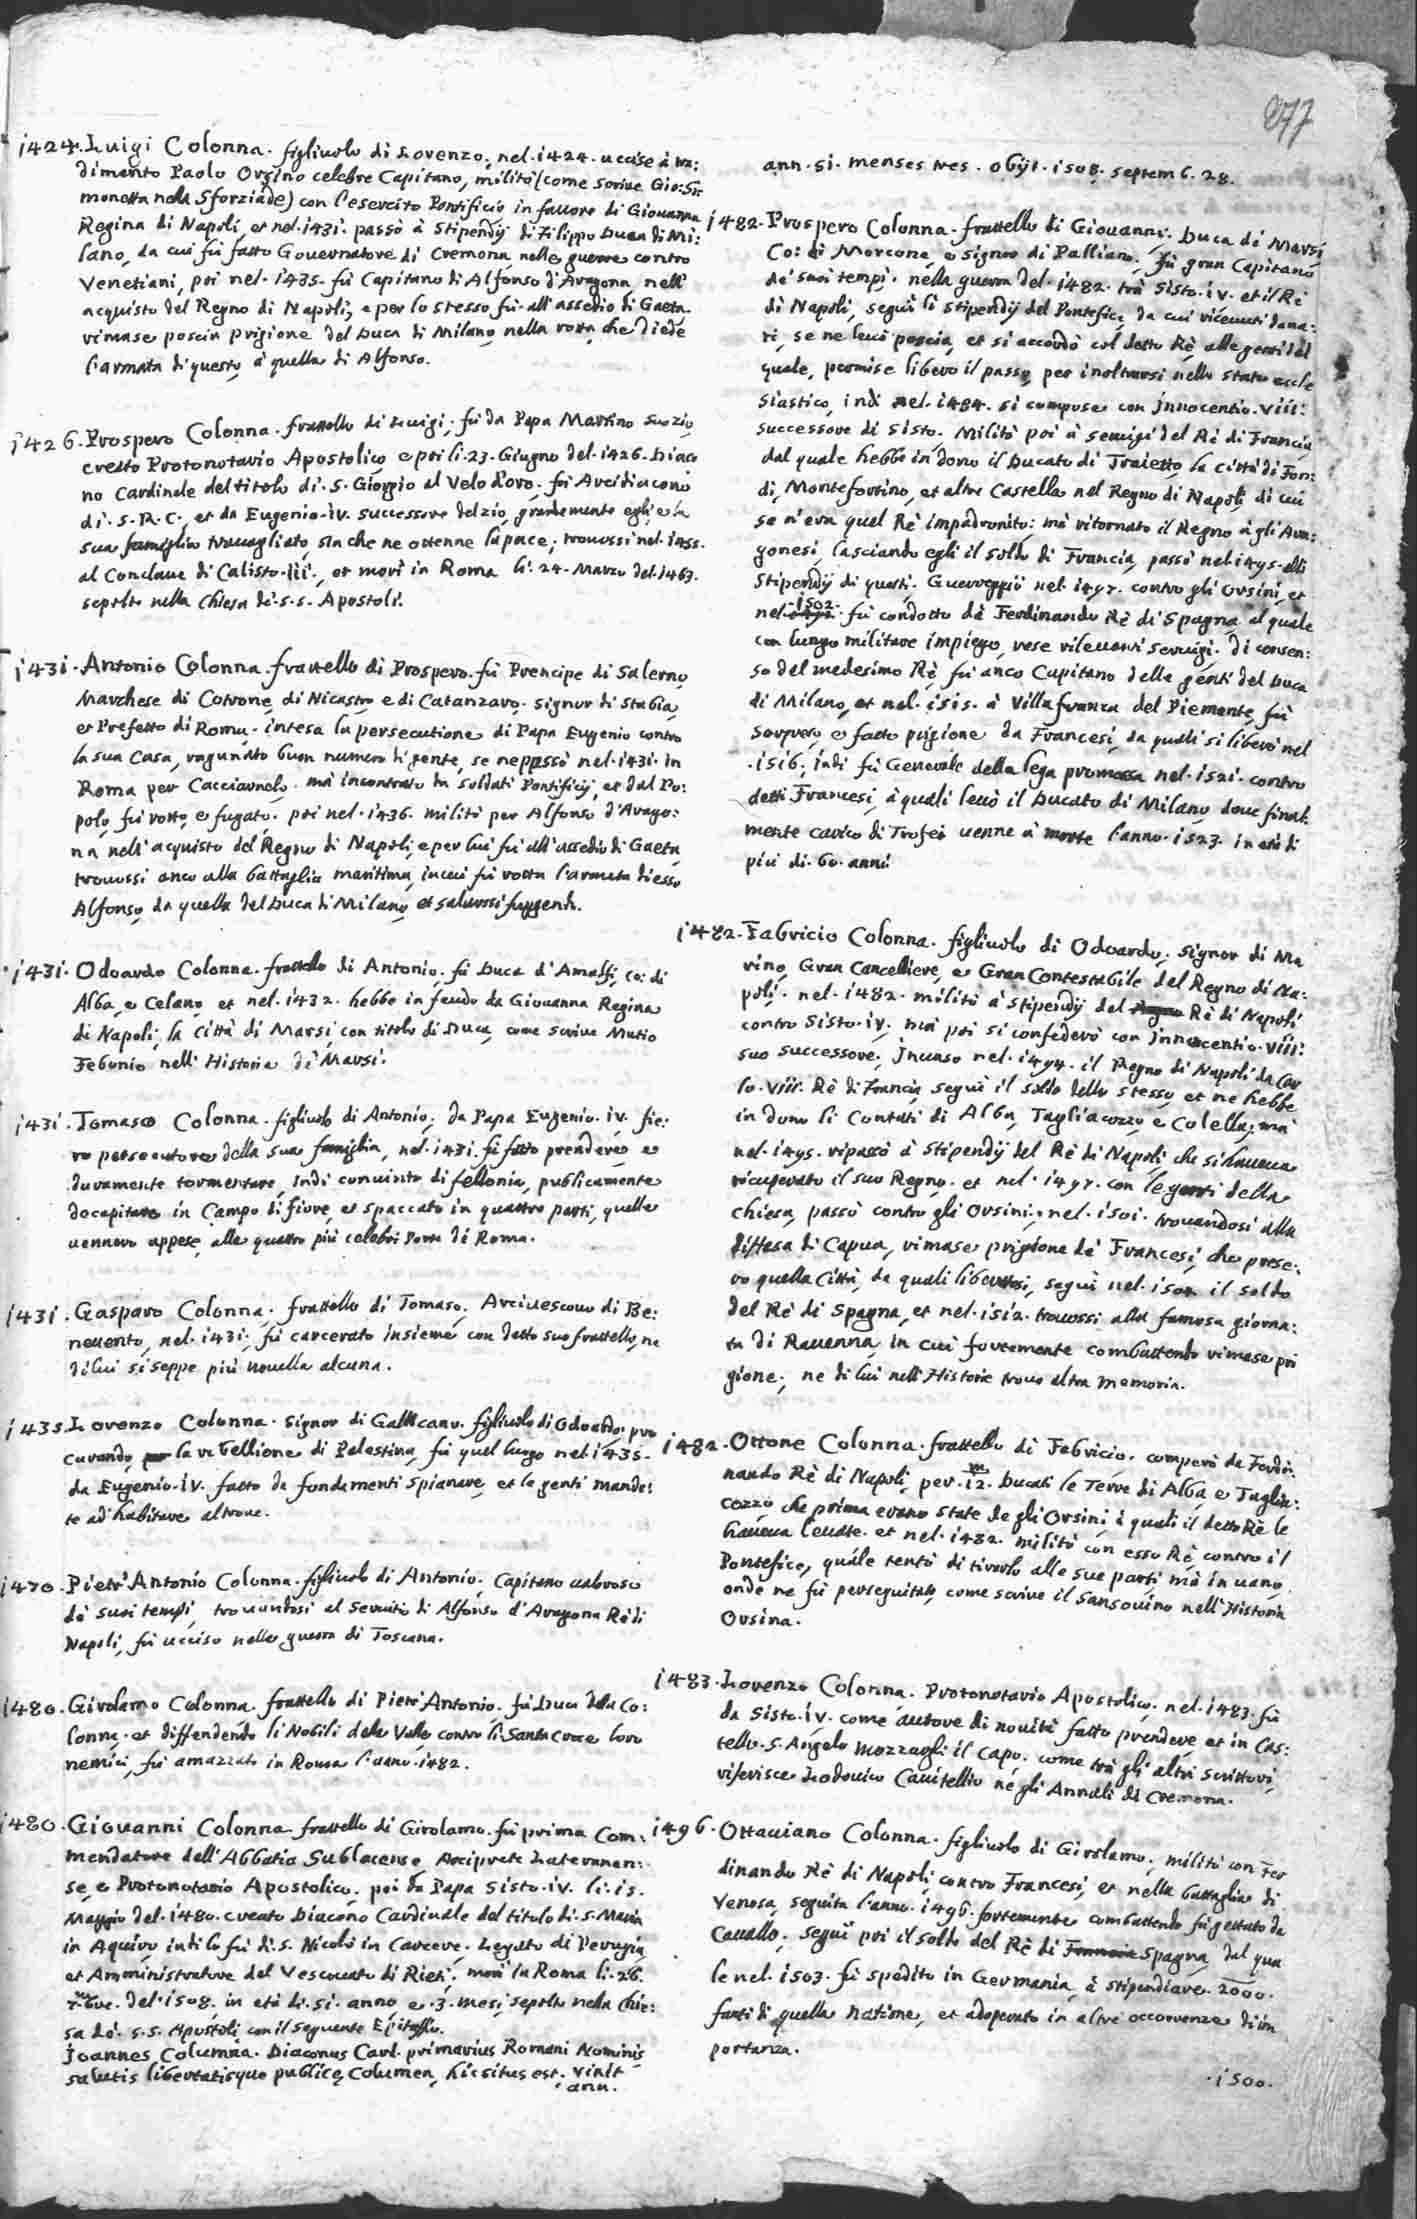 277
1424. Luigi Colonna. figliuolo di Lorenzo, nel. 1424. uccise à tra:
dimento Paolo Orsino celebre Capitano, militò (come scriue Gio: Si:
monetta nela Sforziade) con l'esercito Pontificio in fauore di Giouanna
Regina di Napoli, et nel. 1431. passò à stipendij di Filippo Duca di Mi:
lano, da cui fù fatto Gouernatore di Cremona nelle guerre contro
Venetiani, poi nel. 1435. fù Capitano di Alfonso d'Aragona nell'
acquisto del Regno di Napoli, e per lo stesso fù all'assedio di Gaeta.
rimase poscia prigione del Duca di Milano nella rotta, che diede
l'armata di questo à quella di Alfonso.
1426. Prospero Colonna. frattello di Luigi, fù da Papa Martino suo zio
creato Protonotario Apostolico, e poi li. 23. Giugno del. 1426. Diaco
no Cardinale del titolo di. S. Giorgio al Velo d'oro. fù Arcidiacono
di. S. R. C., et da Eugenio. IV. successore del zio, grandemente egli, e la
sua famiglia trauagliato, sin che ne ottenne la pace; trouossi nel. 1455.
al Conclaue di Calisto. III., et morì in Roma li. 24. Marzo del. 1463.
sepolto nella Chiesa dè. S.S. Apostoli.
1431. Antonio Colonna. frattello di Prospero. fù Prencipe di Salerno,
Marchese di Cotrone, di Nicastro e di Catanzaro. signor di Stabia,
et Prefetto di Roma. intesa la persecutione di Papa Eugenio contro
la sua Casa, ragunato buon numero di gente, se ne passò nel. 1431. in
Roma per Cacciarnelo. mà incontrato da soldati Pontificij, et dal Po:
polo, fù rotto, e fugato. poi nel. 1436. militò per Alfonso d'Arago:
na nell'acquisto del Regno di Napoli, e per lui fù all'assedio di Gaeta,
trouossi anco alla battaglia maritima, in cui fù rotta l'armata di esso
Alfonso, da quella del Duca di Milano, et saluossi fuggendo.
1431. Odoardo Colonna. frattello di Antonio. fù Duca d'Amalfi, Co: di
Alba, e Celano, et nel. 1432. hebbe in feudo da Giouanna Regina
di Napoli, la Città di Marsi, con titolo di Duca, come scriue Mutio
Febonio nell'Historia dè Marsi.
1431. Tomaso Colonna. figliuolo di Antonio, da Papa Eugenio. IV. fie:
ro persecutore della sua famiglia, nel. 1431. fù fatto prendere, e
duramente tormentare, indi conuinto di fellonia, publicamente
decapitato in Campo di fiore, et spaccato in quattro parti, quelle
uennero appese alle quattro più celebri Porte di Roma.
1431. Gasparo Colonna. frattello di Tomaso. Arciuescouo di Be:
neuento, nel. 1431. fù carcerato insieme con detto suo frattello, ne
di lui si seppe più nouella alcuna.
1435. Lorenzo Colonna. signor di Gallicano. figliuolo di Odoardo. pro
curando la ribellione di Palestina, fù quel luogo nel. 1435.
da Eugenio. IV. fatto da fondamenti spianare, et le genti manda:
te ad habitare altroue.
1470. Pietr'Antonio Colonna. figliuolo di Antonio. Capitano ualoroso
dè suoi tempi, trouandosi al seruitio di Alfonso d'Aragona Rè di
Napoli, fù ucciso nelle guerra di Toscana.
1480. Girolamo Colonna. frattello di Pietr'Antonio. fù Duca della Co:
lonna. et diffendendo li Nobili dela Valle contro li Santa Croce loro
nemici, fù amazzato in Roma l'anno. 1482.
1480. Giouanni Colonna. frattello di Girolamo. fù prima Com:
mendatore dell'Abbatia Sublacense, Arciprete Lateranen:
se, e Protonotario Apostolico. poi da Papa Sisto. IV. li. 15.
Maggio del. 1480. creato Diacono Cardinale del titolo di. S. Maria
in Aquiro, indi lo fù di. S. Nicolò in Carcere. Legato di Perugia,
et Amministratore del Vescouato di Rieti, morì in Roma li. 26.
7.bre. del. 1508. in età di. 51. anno, e. 3. mesi, sepolto nela Chie:
sa dè. S.S. Apostoli, con il seguente Epitaffio.
Joannes Columna. Diaconus Card. primarius Romani Nominis
salutis libertatisque publicę Columen, hic situs est. Vixit
ann.
ann. 51. menses tres. obijt. 1508. septemb. 28.
1482. Prospero Colonna. frattello di Giouanni. Duca di Marsi
Co: di Morcone, e signor di Palliano. fù gran Capitano
dè suoi tempi. nella guerra del. 1482. trà Sisto. IV. et il Rè
di Napoli, seguì li stipendij del Pontefice, da cui riceuuti dana:
ri, se ne leuò poscia, et si accordò col detto Rè, alle genti del
quale, permise libero il passo, per inoltrarsi nello stato eccle
siastico, indi nel. 1484. si compose con Innocentio. VIII:
successore di Sisto. Militò poi à seruigi del Rè di Francia,
dal quale hebbe in dono il Ducato di Traietto, la Città di Fon:
di, Montefortino, et altre Castella nel Regno di Napoli, di cui
se n'era quel Rè impadronito: mà ritornato il Regno à gli Ara:
gonesi, lasciando egli il soldo di Francia, passò nel. 1495. alli
stipendij di questi. Guerreggiò nel. 1497. contro gli Orsini, et
nel. 1502. fù condotto dà Ferdinando Rè di Spagna, al quale
con lungo militare impiego, rese rileuanti seruigi. Di consen:
so del medesimo Rè, fù anco Capitano delle genti del Duca
di Milano, et nel. 1515. à Villafranca del Piemonte, fù
sorpreso, e fatto prigione da Francesi, da quali si liberò nel
. 1516. indi fù Generale della lega promossa nel. 1521. contro
detti Francesi, à quali leuò il Ducato di Milano, doue final:
mente carico di Trofei uenne à morte l'anno. 1523. in età di
più di. 60. anni.
1482. Fabricio Colonna. figliuolo di Odoardo. signor di Ma
rino, Gran Cancelliere, e Gran Contestabile del Regno di Na:
poli. nel. 1482. militò à stipendij del Rè di Napoli
contro Sisto. IV. mà poi si confederò con Innocentio. VIII:
suo successore. Inuaso nel. 1494. il Regno di Napoli da Car
lo. VIII. Rè di Francia, seguì il soldo dello stesso, et ne hebbe
in dono li Contati di Alba, Tagliacozzo, e Colella; mà
nel. 1495. ripassò à stipendij del Rè di Napoli, che si haueua
ricuperato il suo Regno. et nel. 1497. con le genti della
Chiesa, passò contro gli Orsini; nel. 1501. trouandosi alla
diffesa di Capua, rimase prigione dè Francesi, che prese:
ro quella Città, da quali liberatosi, seguì nel. 1504. il soldo
del Rè di Spagna, et nel. 1512. trouossi alla famosa giorna:
ta di Rauenna, in cui fortemente combattendo rimase pri
gione, ne di lui nell'Historie trouo altra memoria.
1482. Ottone Colonna. frattello di Fabricio. comperò da Ferdi:
nando Rè di Napoli, per. 12.m Ducati le Terre di Alba, e Taglia:
cozzo, che prima erano state de gli Orsini, à quali il detto Rè le
haueua leuate. et nel. 1482. militò con esso Rè, contro il
Pontefice, quale tentò di tirarlo alle sue parti, mà in uano,
onde ne fù perseguitato, come scriue il Sansouino nell'Historia
Orsina.
1483. Lorenzo Colonna. Protonotario Apostolico. nel. 1483. fù
da Sisto. IV. come autore di nouità fatto prendere, et in Cas:
tello. S. Angelo mozzargli il Capo. come trà gli altri scrittori,
riferisce Lodouico Cauitellio nè gli Annali di Cremona.
1496. Ottauiano Colonna. figliuolo di Girolamo, militò con Fer
dinando Rè di Napoli, contro Francesi, et nella battaglia di
Venosa, seguita l'anno. 1496. fortemente combattendo fù gettato da
Cauallo. seguì poi il soldo del Rè di Francia Spagna, dal qua
le nel. 1503. fù spedito in Germania, à stipendiare. 2000.
fanti di quella natione, et adoperato in altre occorrenze d'im
portanza.
. 1500.